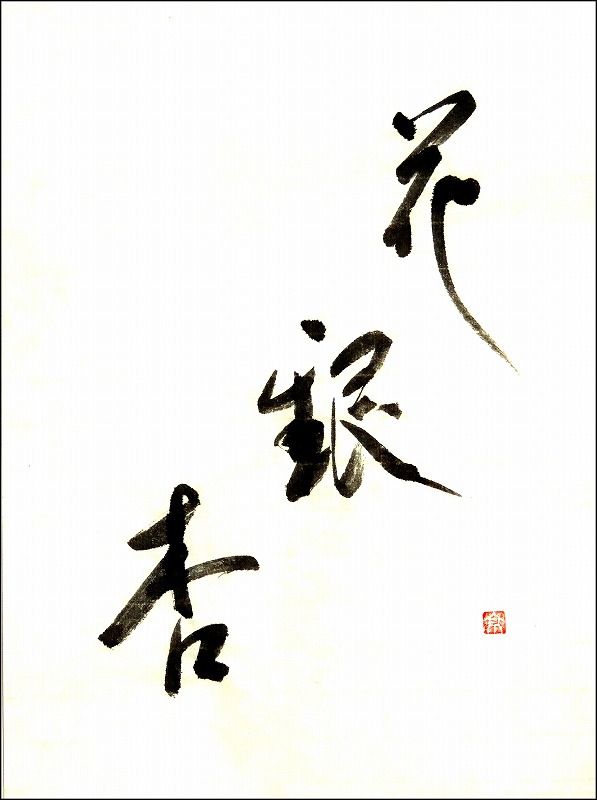 花銀杏